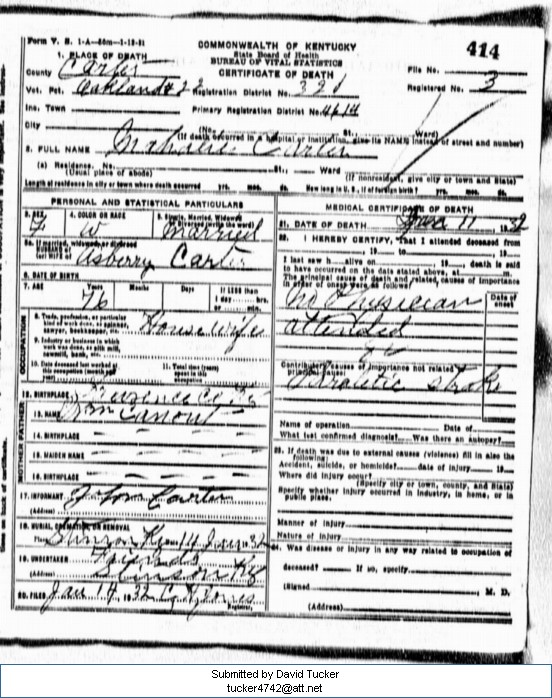 Form V. S. 1-A—50m—1-12-31
COMMONWEALTH OF KENTUCKY
State Board of Health
BUREAU OF VITAL STATISTICS
CERTIFICATE OF DEATH
414
1. PLACE OF DEATH
County Carter
File No.
Registered No. 3
Vot. Pct. Oakland # 22 Registration District No.
Inc. Town Primary Registration District No.
City (No. St. Ward)
(If death occurred in a hospital or institution, give its NAME instead of street and number)
2. FULL NAME Carter
(a) Residence. No. St., Ward
(Usual place of abode) (If nonresident, give city or town and State)
Length of residence in city or town where death occurred yrs. mos. ds. How long in U. S., if of foreign birth? yrs. mos. ds.
PERSONAL AND STATISTICAL PARTICULARS
3. SEX 4. COLOR OR RACE 5. Single, Married, Widowed
or Divorced (write the word)
F W Married
5a. If married, widowed or divorced
(or) WIFE of Asberry Carter
6. DATE OF BIRTH
7. AGE Years Months Days If LESS than
1 day hrs.
or min.
76
OCCUPATION
8. Trade, profession, or particular
kind of work done, as spinner,
sawyer, bookkeeper, etc. House wife
9. Industry or business in which
work was done, as silk mill,
sawmill, bank, etc.
10. Date deceased last worked at
this occupation (month and
year)
11. Total time (years)
spent in this
occupation
12. BIRTHPLACE
FATHER
13. NAME Wm
14. BIRTHPLACE
MOTHER
15. MAIDEN NAME
16. BIRTHPLACE
17. INFORMANT Carter
(Address)
18. BURIAL, CREMATION, OR REMOVAL
Place Ky
19. UNDERTAKER Friends
(Address) Stinson Ky
20. FILED Jan 14 1932 Jones
Registrar.
MEDICAL CERTIFICATE OF DEATH
21. DATE OF DEATH Jan 11 1932
22. I HEREBY CERTIFY, That I attended deceased from
19 to 19
I last saw h alive on 19 , death is said
to have occurred on the date stated above, at m.
The principal cause of death and related causes of importance
in order of onset were as follows:
Date of
onset
No Physician
attended
Contributory causes of importance not related to
principal cause:
stroke
Name of operation Date of
What test confirmed diagnosis? Was there an autopsy?
23. If death was due to external causes (violence) fill in also the
following:
Accident, suicide, or homicide? date of injury 19
Where did injury occur?
(Specify city or town, county, and State)
Specify whether injury occurred in industry, in home, or in
public place.
Manner of injury
Nature of injury
24. Was disease or injury in any way related to occupation of
deceased? If so, specify
(Signed M. D.
(Address)
Submitted by David Tucker
tucker4742@att.net